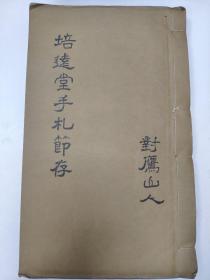 培遠堂手札節存
對鷹山人